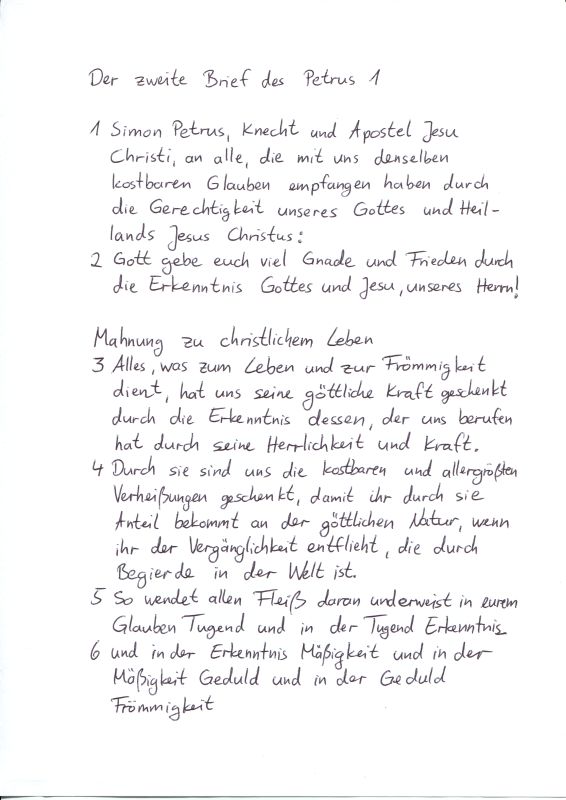 Der zweite Brief des Petrus 1
1 Simon Petrus, Knecht und Apostel Jesu
Christi, an alle, die mit uns denselben
kostbaren Glauben empfangen haben durch
die Gerechtigkeit unseres Gottes und Heil-
lands Jesus Christus:
2 Gott gebe euch viel Gnade und Frieden durch
die Erkenntnis Gottes und Jesu, unseres Herrn!
Mahnung zu christlichem Leben
3 Alles, was zum Leben und zur Frömmigkeit
dient, hat uns seine göttliche Kraft geschenkt
durch die Erkenntnis dessen, der uns berufen
hat durch seine Herrlichkeit und Kraft.
4 Durch sie sind uns die kostbaren und allergrößten
Verheißungen geschenkt, damit ihr durch sie
Anteil bekommt an der göttlichen Natur, wenn
ihr der Vergänglichkeit entflieht, die durch
Begierde in der Welt ist.
5 So wendet allen Fleiß daran und erweist in eurem
Glauben Tugend und in der Tugend Erkenntnis
6 und in der Erkenntnis Mäßigkeit und in der
Mäßigkeit Geduld und in der Geduld
Frömmigkeit